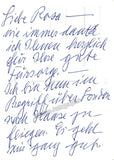 Liebe Rosa –
wie immer danke
ich Ihnen herzlich
für Ihre gute
Fürsorge.
Ich bin nun im
Begriff über London
nach Hause zu
fliegen. Es geht
mir ganz gut